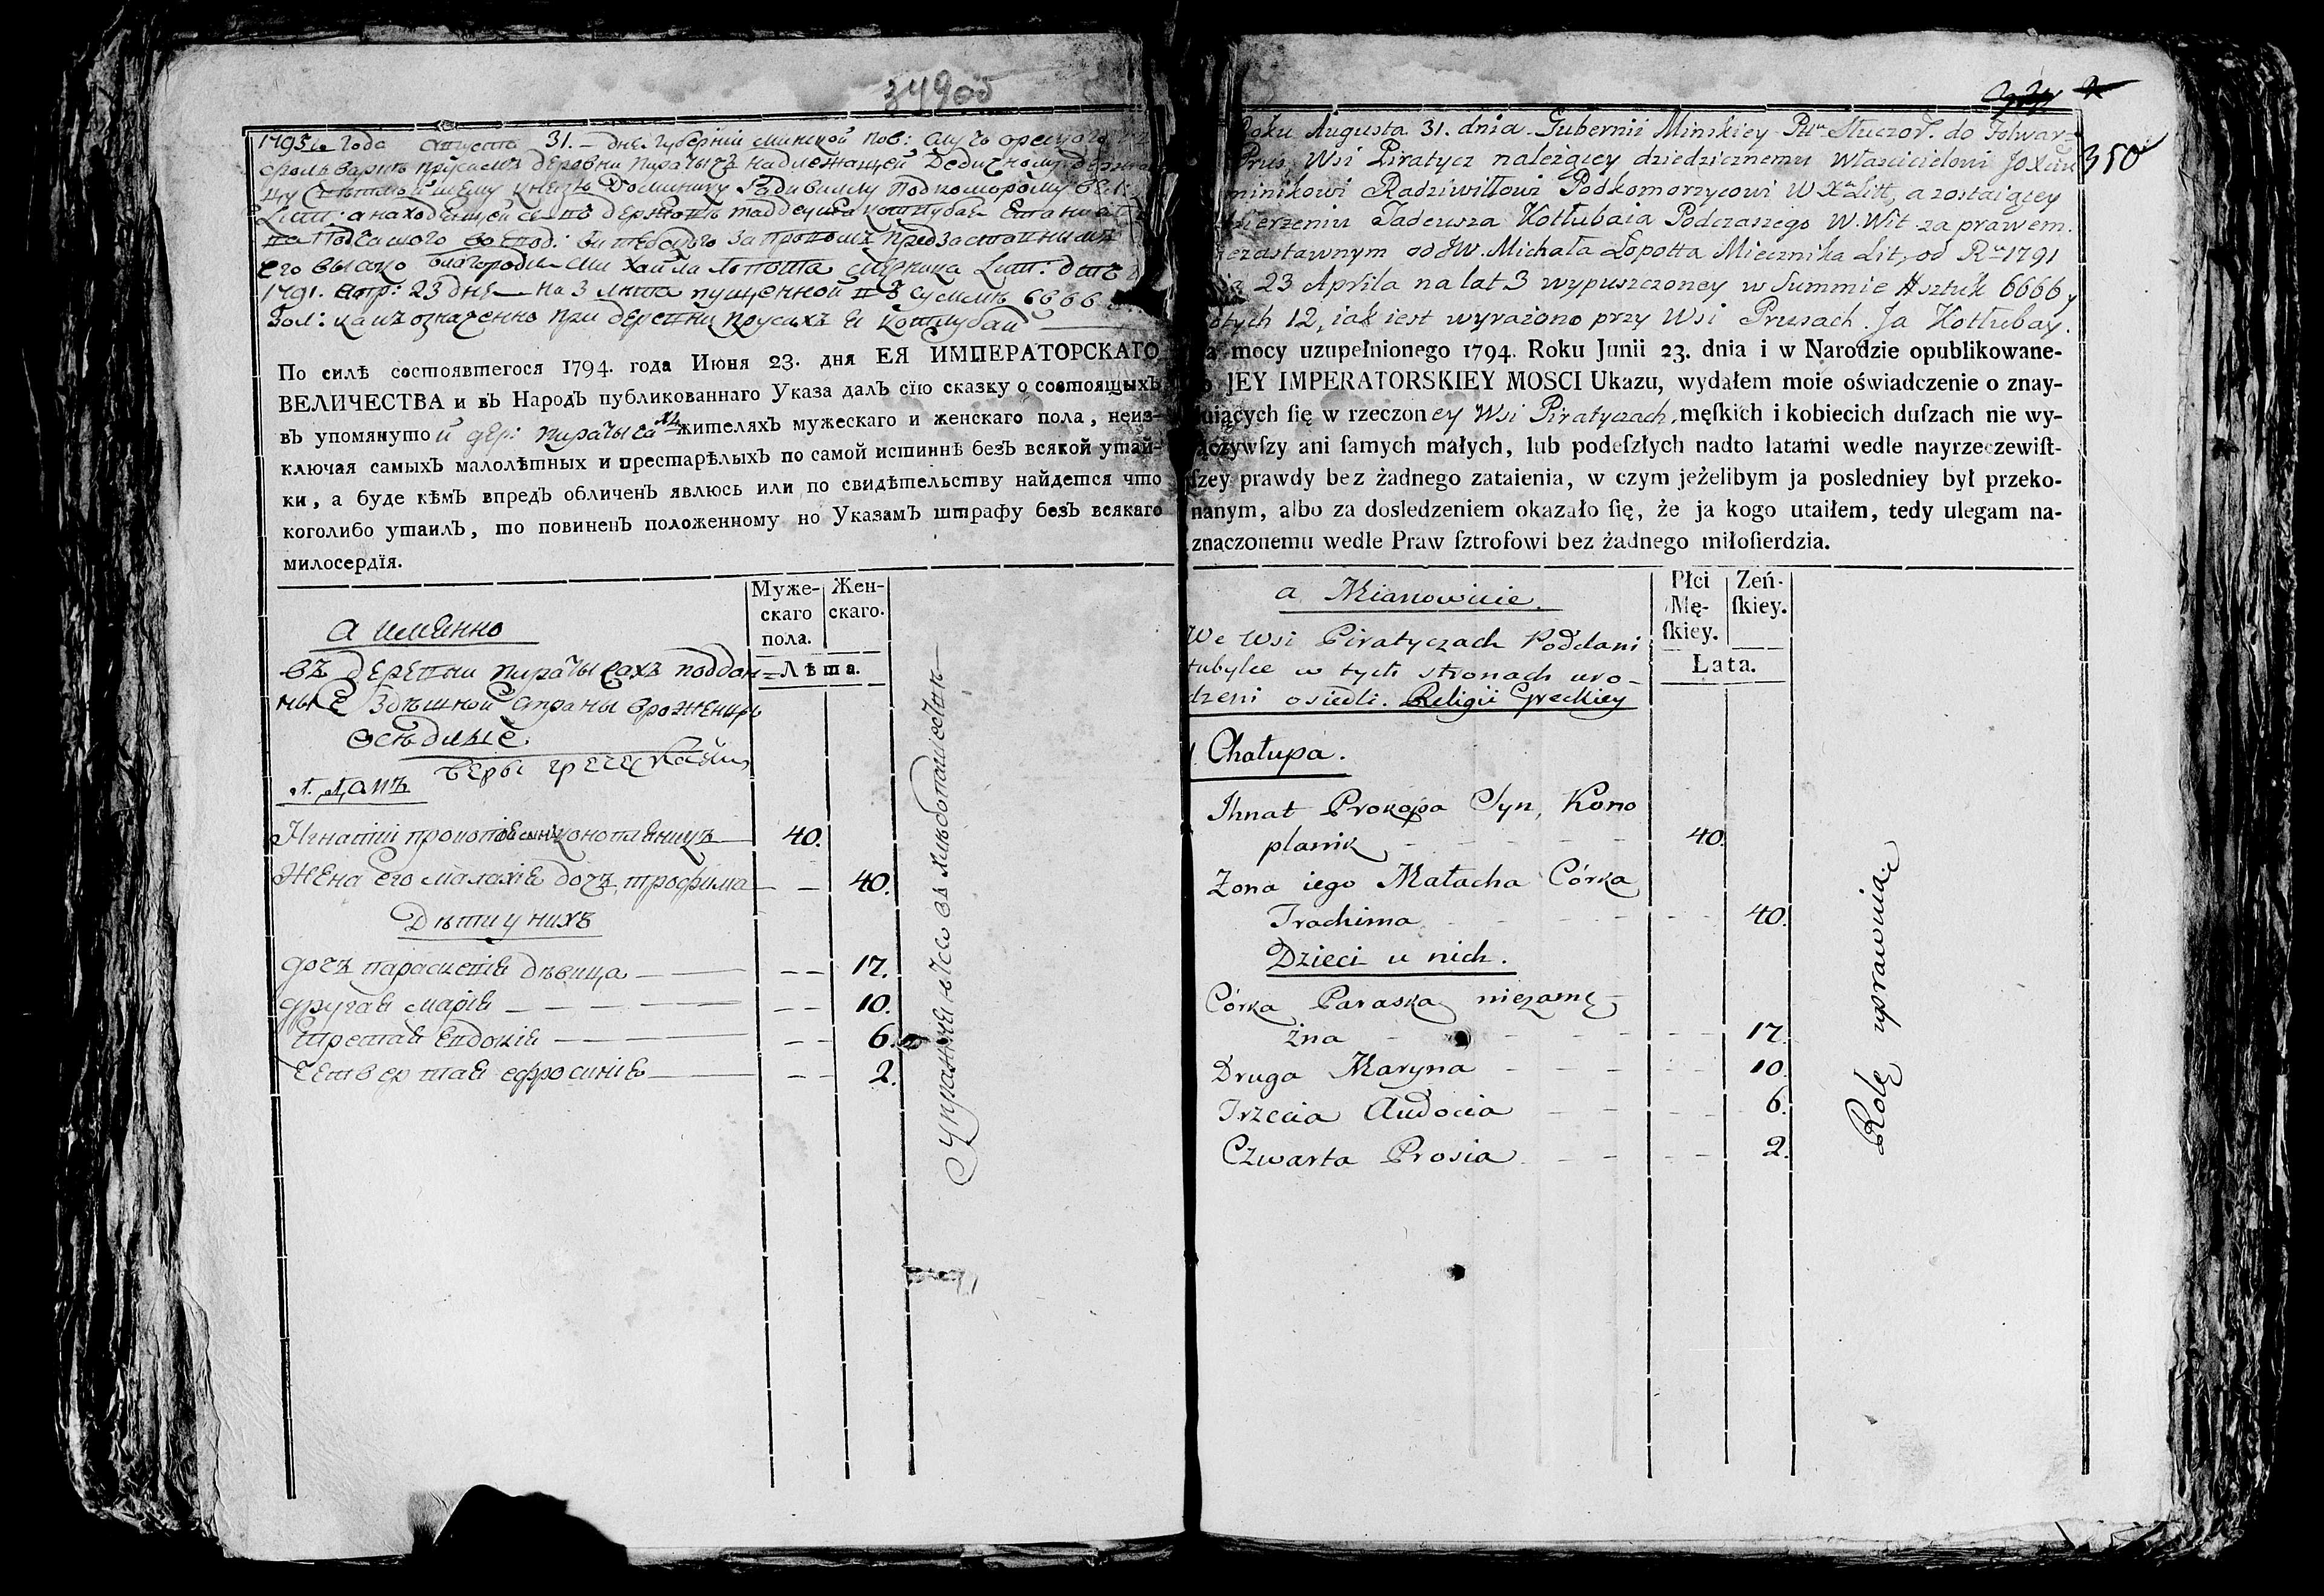 349об
1795го года Августа 31. дня Губерніи Минской пов:
фольварку деревни Пиратычъ надлежащей Дедичному
князю Доминику Подкоморому
Лит: а находящейся въ
Подчашого
его высоко благородия Михайла Лопота Лит:
1791. Апр: 23 дня на 3 лѣта пущенной въ суммѣ 6666
Зол: какъ означенно при деревни Прусахъ Я Котлубай
По силѣ состоявшегося 1794. года Июня 23. дня ЕЯ ИМПЕРАТОРСКАГО
ВЕЛИЧЕСТВА и въ Народъ публикованнаго Указа далъ сїю сказку о состоящыхъ
въ упомянутой дер: Пиратычахъ жителяхъ мужескаго и женскаго пола, неиз-
ключая самыхъ малолѣтныхъ и престарѣлыхъ по самой истиннѣ безъ всякой утай-
ки, а буде кѣмъ впредъ обличенъ явлюсь или по свидѣтельству найдется что
коголибо утаилъ, то повиненъ положенному по Указамъ штрафу безъ всякаго
милосердїя.
Муже-
скаго
пола.
Жен-
скаго.
Лѣта.
а имянно
въ деревни Пиратычахъ поддан=
ные здѣшной страны врожении
осѣдлые
веры греческой
Игнатій Прокопія сынъ Конопляникъ 40.
Жена его Малахія дочъ Трофима 40.
Дѣти у нихъ
дочъ Параскевія дѣвица 17.
другая Марія 10.
третая Евдокія 6.
четвертая Ефросинія 2.
Упражняются въ хлѣбопашествѣ
2
350
Roku Augusta 31. dnia. Gubernii Minskiey Pttu Słuczor. do Folwar=
Prus, Wsi Piratycz należącey dziedzicznemu Włascicielowi JOXciu
minikowi Radziwiłłowi Podkomorzycowi W Xa Litt, a zostaiącey
dzierzeniu Tadeusza Kotłubaia Podczaszego W. Wit za prawem
zastawnym od JW. Michała Łopotta Miecznika Lit, od Ru 1791
23 Aprila na lat 3 wypuszczoney w Summie # sztuk 6666,
złotych 12, iak iest wyrażono przy Wsi Prusach. Ja Kotłubay.
Na mocy uzupełnionego 1794. Roku Junii 23. dnia i w Narodzie opublikowane-
go JEY IMPERATORSKIEY MOSCI Ukazu, wydałem moie oświadczenie o znay-
duiących ſię w rzeczoney Wsi Piratyczach, męſkich i kobiecich duſzach nie wy-
łączywſzy ani ſamych małych, lub podeſzłych nadto latami wedle nayrzeczewiſt-
ſzey prawdy bez żadnego zataienia, w czym jeżelibym ja posledniey był przeko-
nanym, albo za dosledzeniem okazało ſię, że ja kogo utaiłem, tedy ulegam na-
znaczonemu wedle Praw ſztrofowi bez żadnego miłoſierdzia.
Płci
Mę-
ſkiey.
Zeń-
ſkiey.
Lata.
a Mianowicie.
We Wsi Piratyczach Poddani
tubylce w tych stronach uro-
dzeni osiedli. Religii Greckiey
1 Chałupa.
Ihnat Prokopa Syn, Kono
planik 40.
Zona iego Małacha Córka
Trachima 40.
Dzieci u nich.
Córka Paraska niezamę-
żna 17.
Druga Maryna 10.
Trzecia Audocia 6.
Czwarta Prosia 2.
Rolę uprawuią